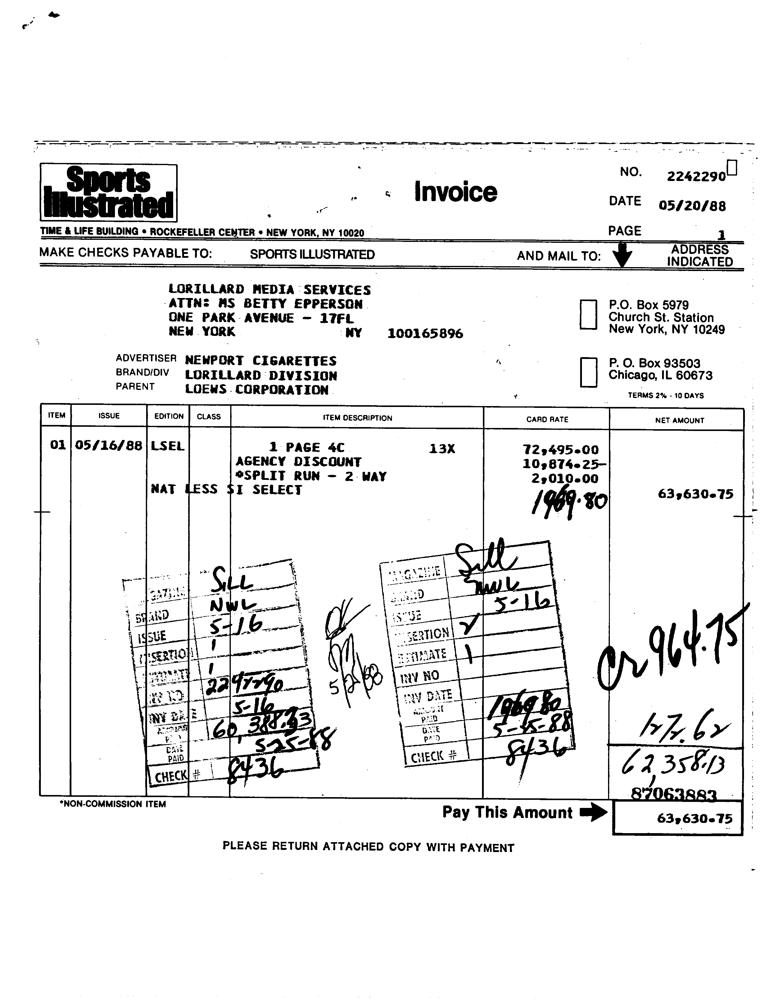 Sports
Illustrated
Invoice
NO. 2242290
DATE 05/20/88
PAGE 1
TIME & LIFE BUILDING • ROCKEFELLER CENTER • NEW YORK, NY 10020
MAKE CHECKS PAYABLE TO: SPORTS ILLUSTRATED AND MAIL TO: ADDRESS INDICATED
LORILLARD MEDIA SERVICES
ATTN: MS BETTY EPPERSON
ONE PARK AVENUE - 17FL
NEW YORK NY 100165896
P.O. Box 5979
Church St. Station
New York, NY 10249
ADVERTISER NEWPORT CIGARETTES
BRAND/DIV LORILLARD DIVISION
PARENT LOEWS CORPORATION
P. O. Box 93503
Chicago, IL 60673
TERMS 2% - 10 DAYS
ITEM ISSUE EDITION CLASS ITEM DESCRIPTION CARD RATE NET AMOUNT
01 05/16/88 LSEL 1 PAGE 4C 13X 72,495.00
AGENCY DISCOUNT 10,874.25-
*SPLIT RUN - 2 WAY 2,010.00
NAT LESS SI SELECT 63,630.75
1969.80
MAGAZINE Sill
BRAND NWL
ISSUE 5-16
INSERTION 2
ESTIMATE 1
INV NO
INV DATE
AMOUNT PAID 1969.80
DATE PAID 5-25-88
CHECK # 8436
SILL
BRAND NWL
ISSUE 5-16
INSERTION 1
ESTIMATE 1
INV NO 2242290
INV DATE 5-16
AMOUNT PAID 60,388.33
DATE PAID 5-25-88
CHECK # 8436
OK
5/25/88
Cr 964.75
1272.62
62,358.13
87063883
*NON-COMMISSION ITEM
Pay This Amount 63,630.75
PLEASE RETURN ATTACHED COPY WITH PAYMENT